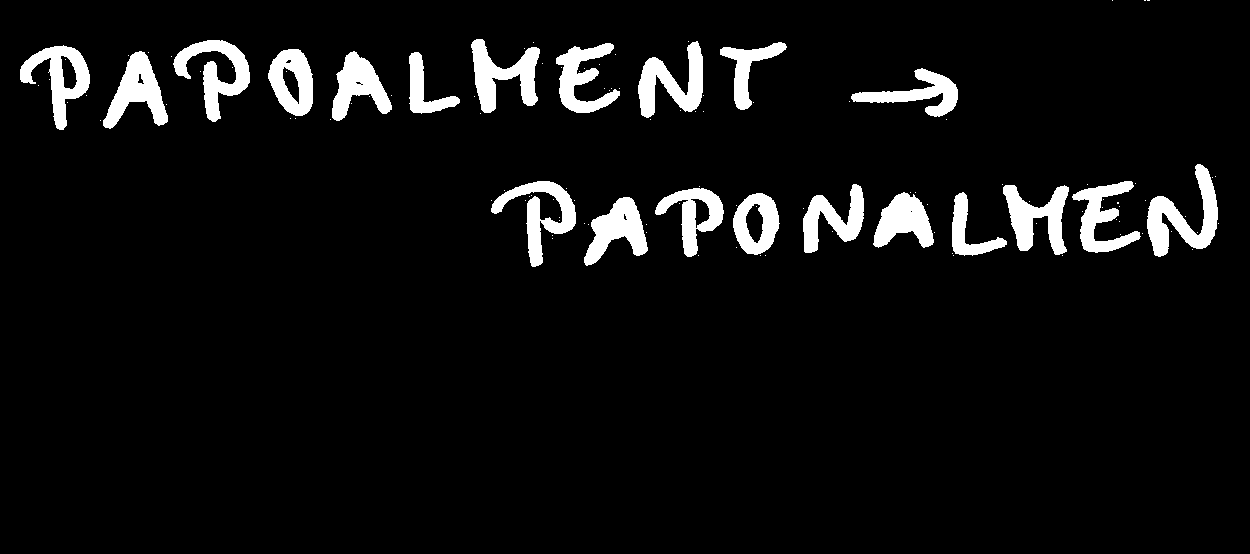 PAPOALMENT →
PAPONALMEN